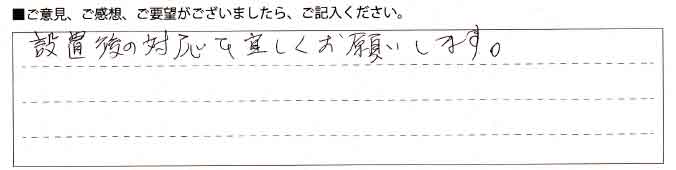 ■ご意見、ご感想、ご要望がございましたら、ご記入ください。
設置後の対応も宜しくお願いします。